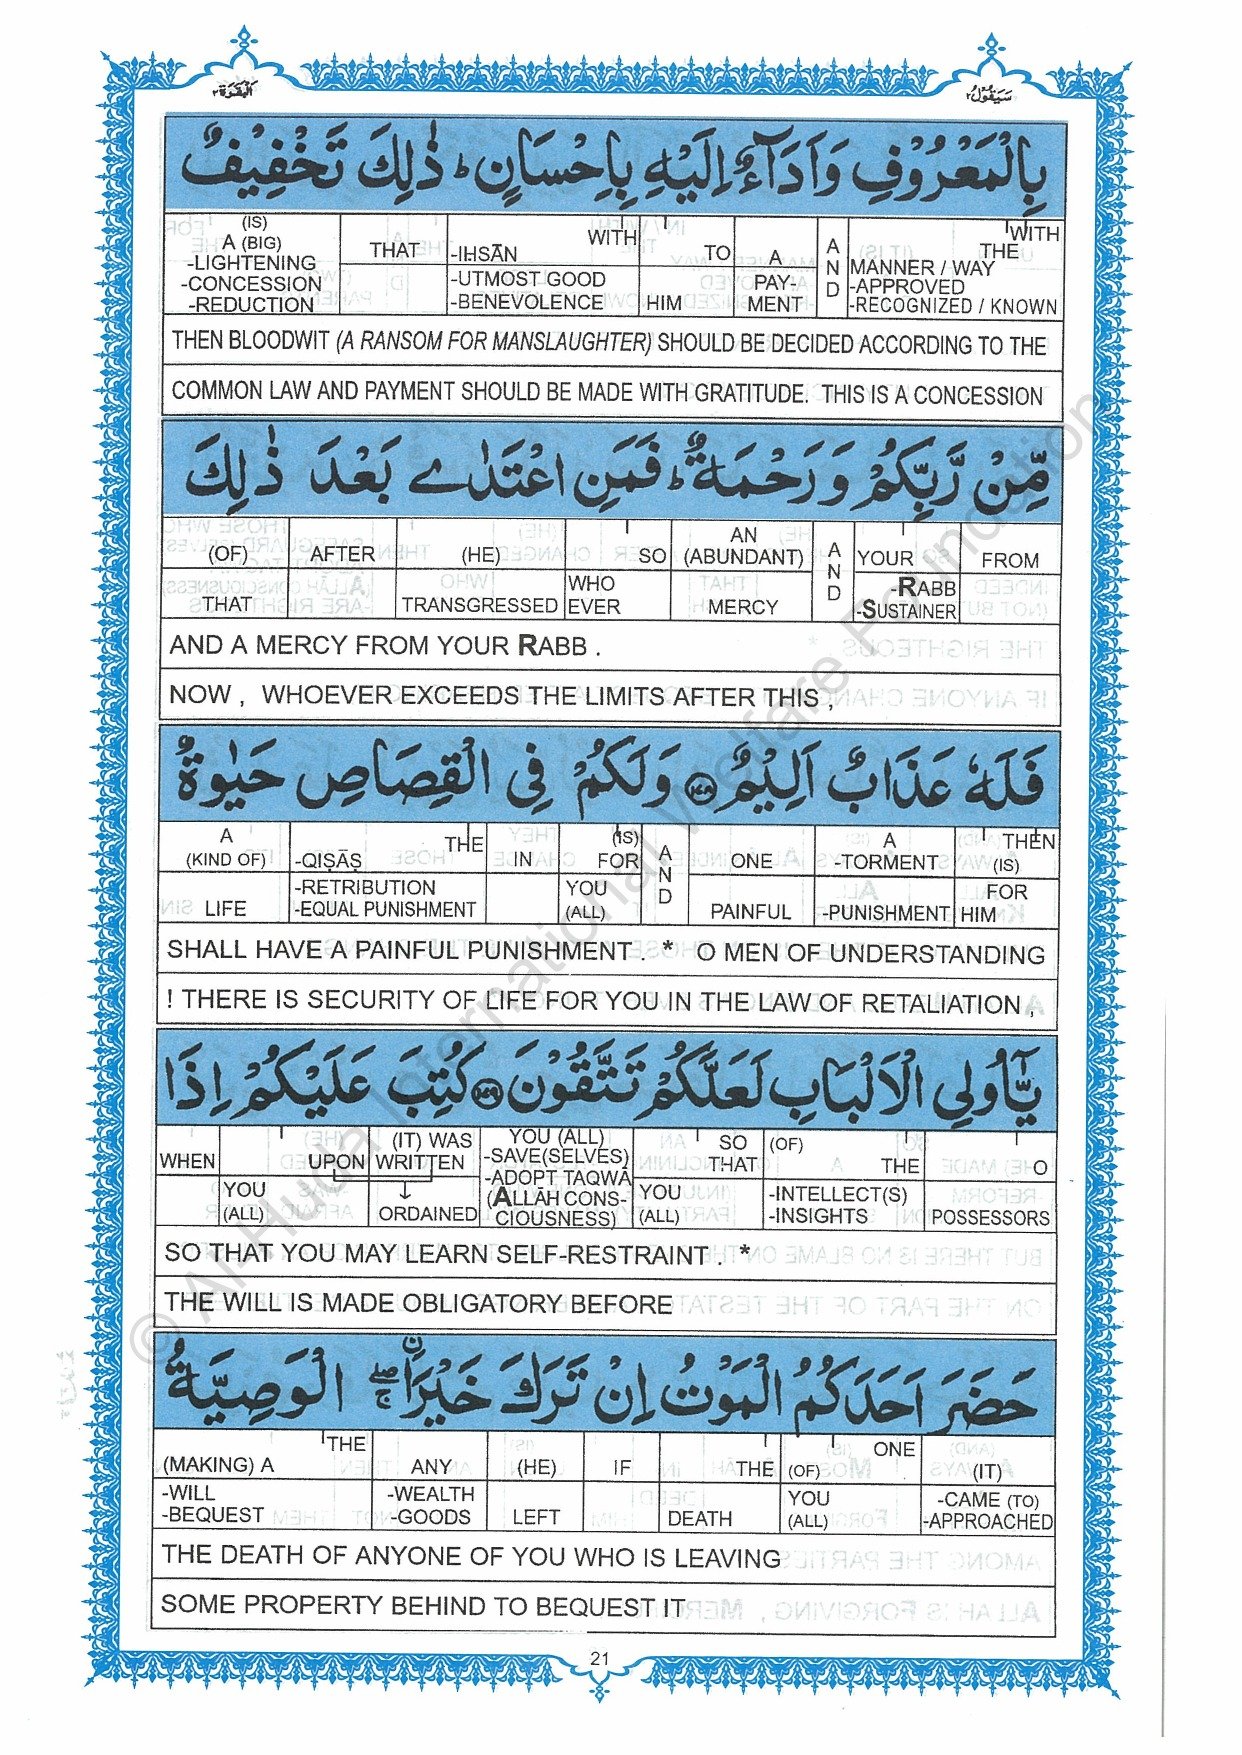 البقرة ٢
سيقول ٢
بِالْمَعْرُوْفِ وَاَدَآءٌ اِلَيْهِ بِاِحْسَانٍ ؕ ذٰلِكَ تَخْفِيْفٌ
(IS) A (BIG) -LIGHTENING -CONCESSION -REDUCTION | THAT | WITH -IḤSĀN -UTMOST GOOD -BENEVOLENCE | TO HIM | A PAY-MENT | AND | WITH THE MANNER / WAY -APPROVED -RECOGNIZED / KNOWN
THEN BLOODWIT (A RANSOM FOR MANSLAUGHTER) SHOULD BE DECIDED ACCORDING TO THE
COMMON LAW AND PAYMENT SHOULD BE MADE WITH GRATITUDE. THIS IS A CONCESSION
مِّنْ رَّبِّكُمْ وَرَحْمَةٌ ؕ فَمَنِ اعْتَدٰى بَعْدَ ذٰلِكَ
(OF) THAT | AFTER | (HE) TRANSGRESSED | SO WHO EVER | AN (ABUNDANT) MERCY | AND | YOUR -RABB -SUSTAINER | FROM
AND A MERCY FROM YOUR RABB .
NOW , WHOEVER EXCEEDS THE LIMITS AFTER THIS ,
فَلَهٗ عَذَابٌ اَلِيْمٌ ﴿١٧٨﴾ وَلَكُمْ فِى الْقِصَاصِ حَيٰوةٌ
A (KIND OF) LIFE | THE -QIṢĀṢ -RETRIBUTION -EQUAL PUNISHMENT | IN | (IS) FOR YOU (ALL) | AND | ONE PAINFUL | A -TORMENT -PUNISHMENT | THEN (IS) FOR HIM
SHALL HAVE A PAINFUL PUNISHMENT . * O MEN OF UNDERSTANDING
! THERE IS SECURITY OF LIFE FOR YOU IN THE LAW OF RETALIATION ,
يّٰۤاُولِى الْاَلْبَابِ لَعَلَّكُمْ تَتَّقُوْنَ ﴿١٧٩﴾ كُتِبَ عَلَيْكُمْ اِذَا
WHEN | UPON YOU (ALL) | (IT) WAS WRITTEN ↓ ORDAINED | YOU (ALL) -SAVE(SELVES) -ADOPT TAQWĀ (ALLĀH CONS-CIOUSNESS) | SO THAT YOU (ALL) | (OF) THE -INTELLECT(S) -INSIGHTS | O POSSESSORS
SO THAT YOU MAY LEARN SELF-RESTRAINT . *
THE WILL IS MADE OBLIGATORY BEFORE
حَضَرَ اَحَدَكُمُ الْمَوْتُ اِنْ تَرَكَ خَيْرَا ۖۚ ۨالْوَصِيَّةُ
THE (MAKING) A -WILL -BEQUEST | ANY -WEALTH -GOODS | (HE) LEFT | IF | THE DEATH | ONE (OF) YOU (ALL) | (IT) -CAME (TO) -APPROACHED
THE DEATH OF ANYONE OF YOU WHO IS LEAVING
SOME PROPERTY BEHIND TO BEQUEST IT
21
© Al-Huda International Welfare Foundation